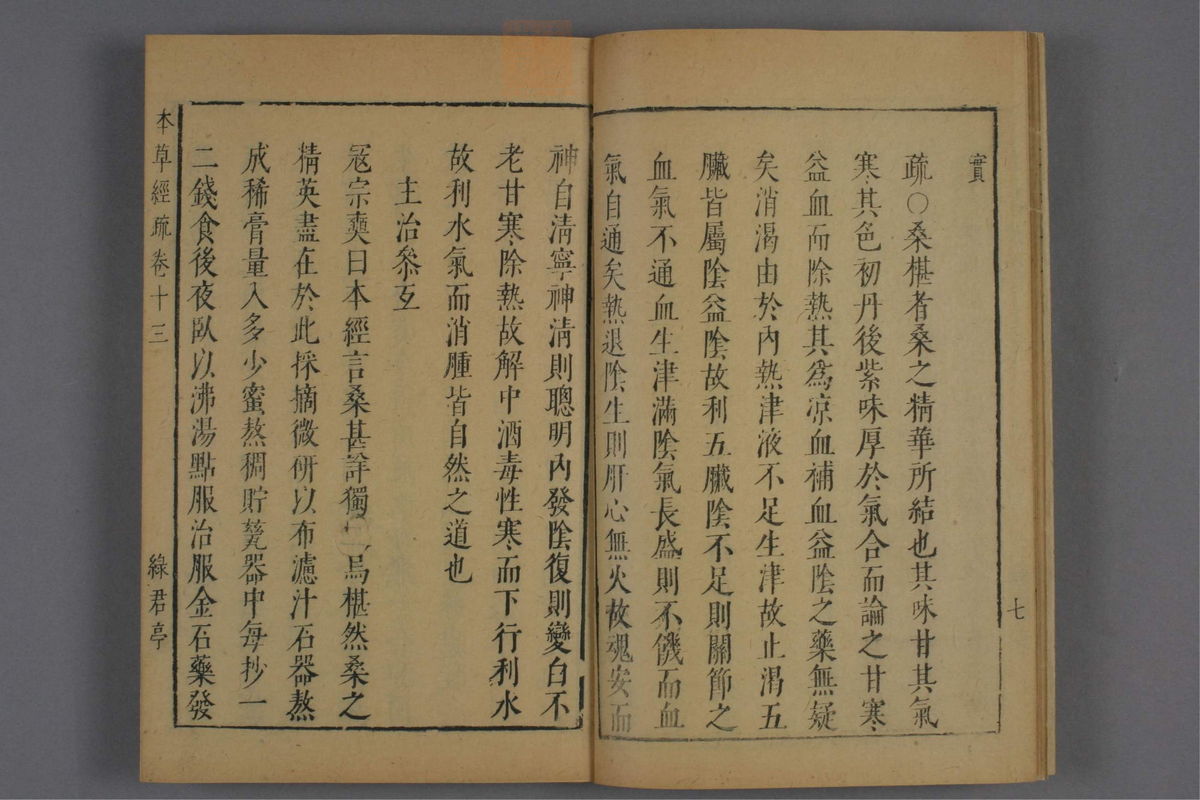 實
疏○桑椹者桑之精華所結也其味甘其氣
寒其色初丹後紫味厚於氣合而論之甘寒
益血而除熱其爲凉血補血益陰之藥無疑
矣消渴由於內熱津液不足生津故止渴五
臟皆屬陰益陰故利五臟陰不足則關節之
血氣不通血生津滿陰氣長盛則不饑而血
氣自通矣熱退陰生則肝心無火故魂安而
七
神自清寧神清則聰明內發陰復則變白不
老甘寒除熱故解中酒毒性寒而下行利水
故利水氣而消腫皆自然之道也
主治叅互
宼宗奭曰本經言桑甚詳獨 烏椹然桑之
精英盡在於此採摘微研以布濾汁石器熬
成稀膏量入多少蜜熬稠貯甆器中每抄一
二錢食後夜臥以沸湯點服治服金石藥發
本草經疏卷十三
綠君亭